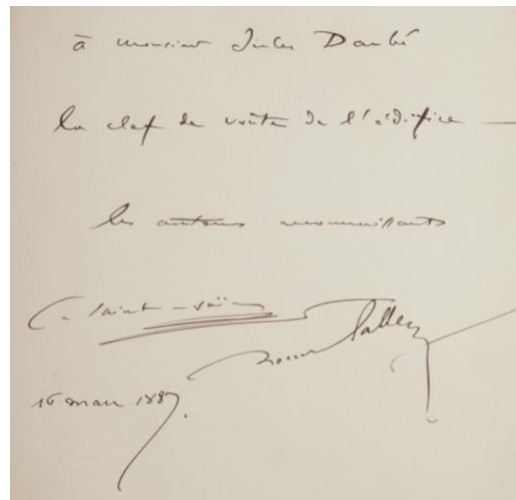 à monsieur Jules Danbé
la clef de voûte de l'édifice —
les auteurs reconnaissants
C. Saint-Saëns
Louis Gallet
16 mars 1887.